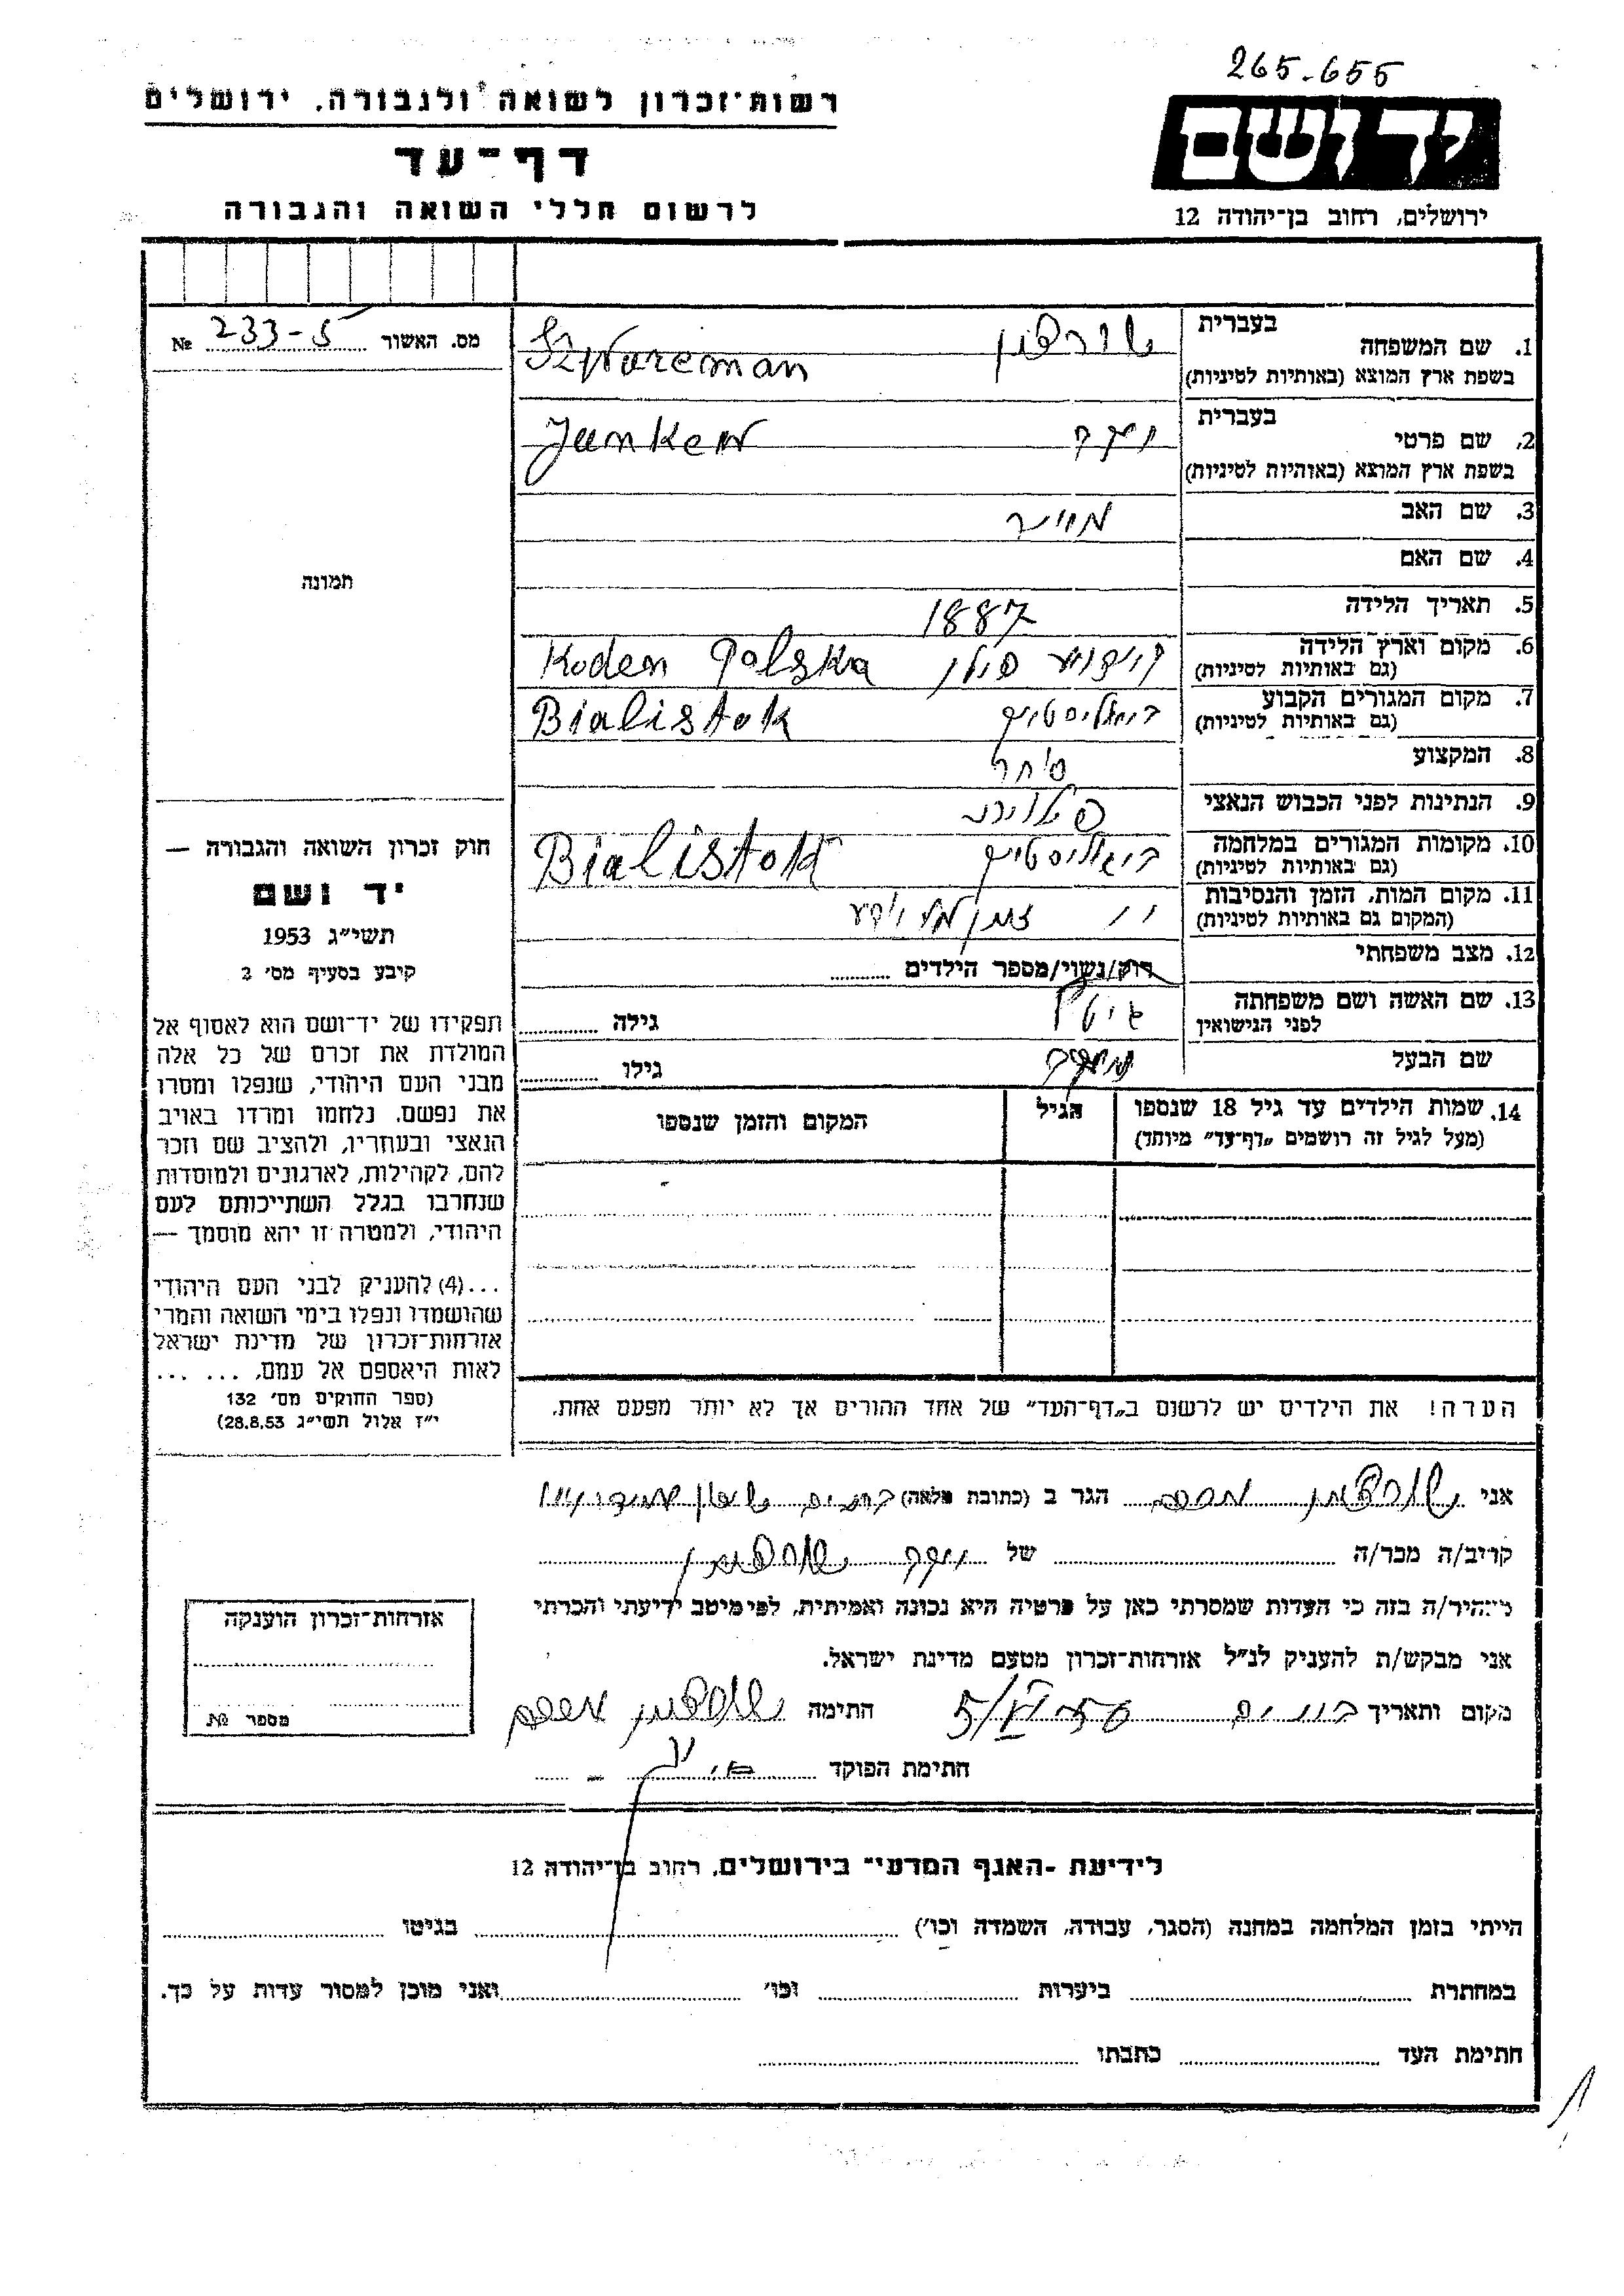 265-655
רשות־זכרון לשואה ולגבורה, ירושלים
יד ושם
דף־עד
לרשום חללי השואה והגבורה
ירושלים, רחוב בן־יהודה 12
מס. האשור 233-5 №
בעברית
1. שם המשפחה
בשפת ארץ המוצא (באותיות לטיניות)
Szwarcman
בעברית
2. שם פרטי
בשפת ארץ המוצא (באותיות לטיניות)
Jankew
3. שם האב
4. שם האם
5. תאריך הלידה 1887
6. מקום וארץ הלידה פולן Koden Polska
(גם באותיות לטיניות)
7. מקום המגורים הקבוע ביאליסטוק Bialistok
(גם באותיות לטיניות)
8. המקצוע סוחר
9. הנתינות לפני הכבוש הנאצי
10. מקומות המגורים במלחמה ביאליסטוק Bialistok
(גם באותיות לטיניות)
11. מקום המות, הזמן והנסיבות
(המקום גם באותיות לטיניות)
12. מצב משפחתי רוק/נשוי/מספר הילדים
13. שם האשה ושם משפחתה
לפני הנישואין
גילה
שם הבעל
גילו
14. שמות הילדים עד גיל 18 שנספו
(מעל לגיל זה רושמים „דף־עד” מיוחד)
הגיל
המקום והזמן שנספו
תמונה
חוק זכרון השואה והגבורה —
יד ושם
תשי״ג 1953
קיבע בסעיף מס׳ 2
תפקידו של יד־ושם הוא לאסוף אל
המולדת את זכרם של כל אלה
מבני העם היהודי, שנפלו ומסרו
את נפשם, נלחמו ומרדו באויב
הנאצי ובעוזריו, ולהציב שם וזכר
להם, לקהילות, לארגונים ולמוסדות
שנחרבו בגלל השתייכותם לעם
היהודי, ולמטרה זו יהא מוסמך —
...(4) להעניק לבני העם היהודי
שהושמדו ונפלו בימי השואה והמרי
אזרחות־זכרון של מדינת ישראל
לאות היאספם אל עמם. ... ...
(ספר החוקים מס׳ 132
י״ז אלול תשי״ג 28.8.53)
הערה! את הילדים יש לרשום ב„דף־העד” של אחד ההורים אך לא יותר מפעם אחת.
אני הגר ב (כתובת מלאה)
קריב/ה מכר/ה של
מצהיר/ה בזה כי העדות שמסרתי כאן על פרטיה היא נכונה ואמיתית, לפי מיטב ידיעתי והכרתי
אני מבקש/ת להעניק לנ״ל אזרחות־זכרון מטעם מדינת ישראל.
מקום ותאריך חתימה
חתימת הפוקד
אזרחות־זכרון הוענקה
מספר №
לידיעת ־האגף המדעי־ בירושלים, רחוב בן־יהודה 12
הייתי בזמן המלחמה במחנה (הסגר, עבודה, השמדה וכו׳) בגיטו
במחתרת ביערות וכו׳ ואני מוכן למסור עדות על כך.
חתימת העד כתבתו